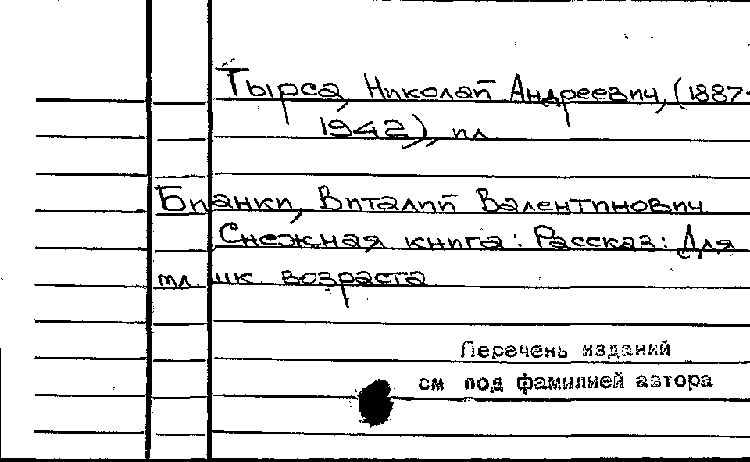 Тырса, Николай Андреевич, (1887-
1942), ил.
Бианки, Виталий Валентинович
Снежная книга: Рассказ: Для
мл. шк. возраста
Перечень изданий
см под фамилией автора